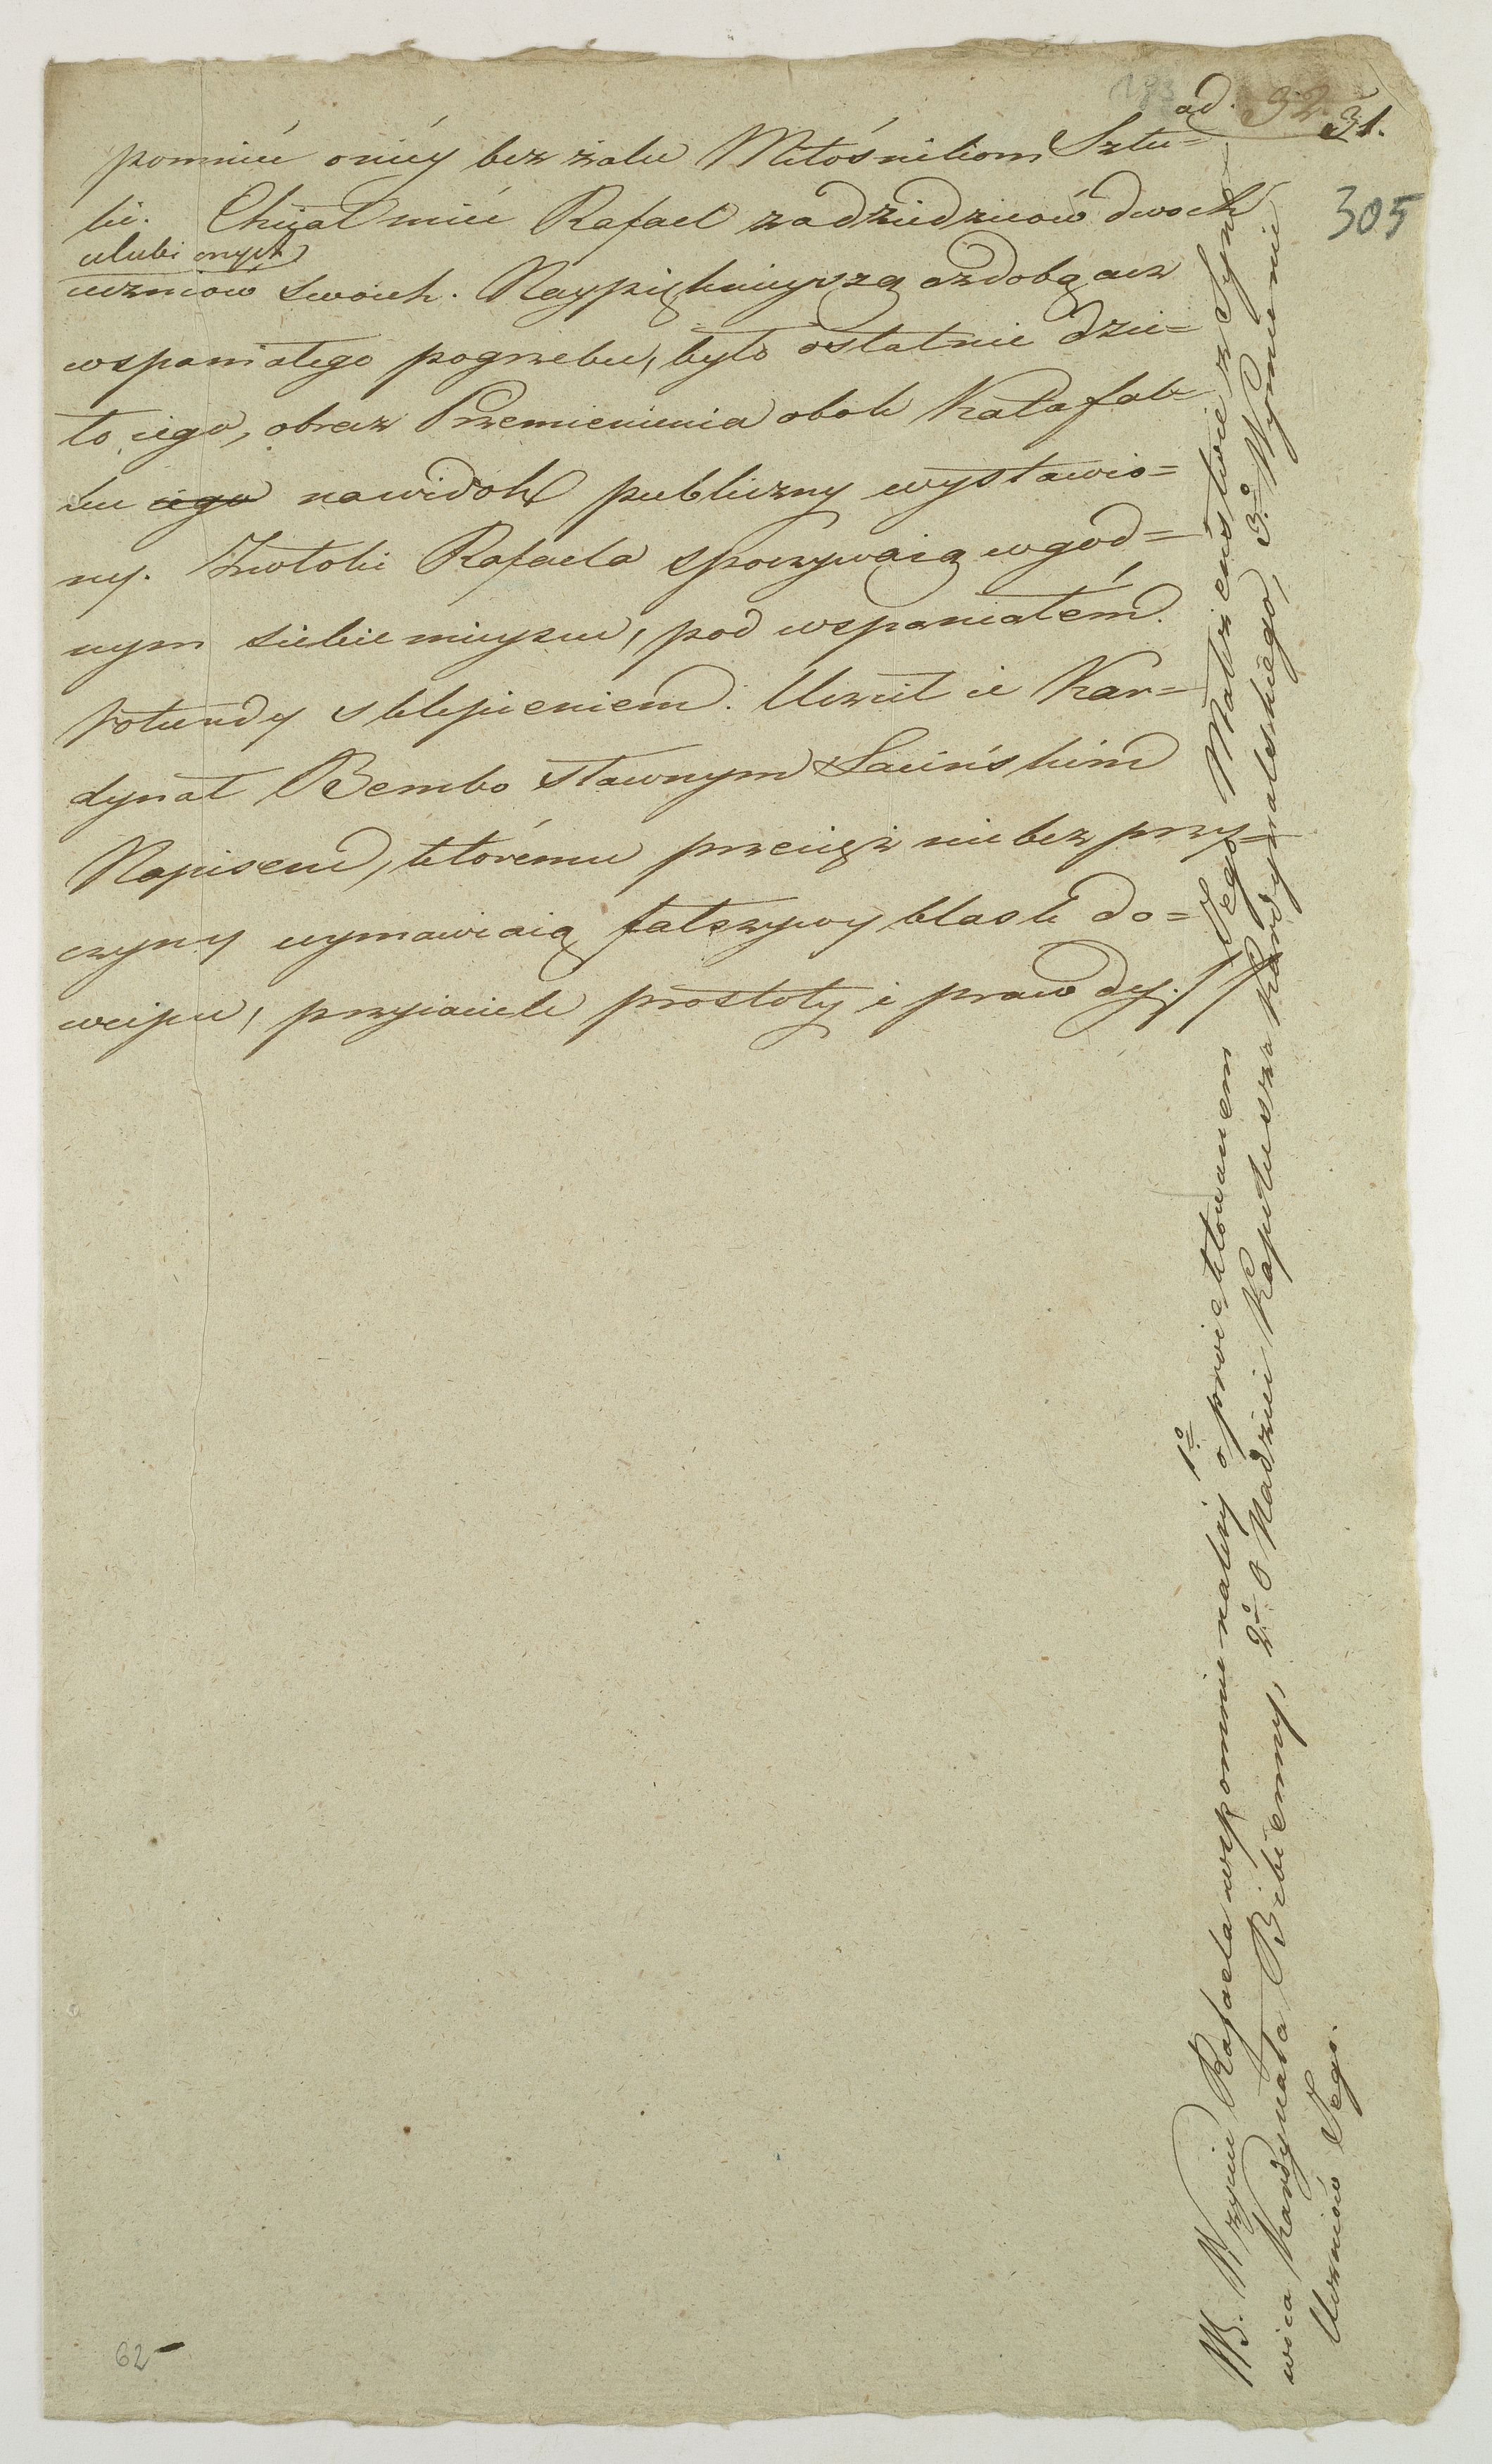 ad. 32. 31.
305
pomnieć oniéy bez żalu Miłośnikom Sztu=
ki. Chciał mieć Rafael za dziedziców dwoch
ulubionych
uczniów swoich. Naypięknieyszą ozdobą acz
wspaniałego pogrzebu, było ostatnie dzie=
ło iego, obraz Przemienienia obok Katafal
ku iego na widok publiczny wystawio=
ny. Zwłoki Rafaela spoczywaią w god=
nym siebie mieyscu, pod wspaniałém
rotundy sklepieniem. Uczcił ie Kar=
dynał Bembo sławnym Łacińskim
Napisem, któremu przecięż nie bez przy=
czyny wymawiaią fałszywy blask do=
wcipu, przyiaciele prostoty i prawdy.
NB. W życiu Rafaela wspomnie należy 1º o proiektowaném Jego Małżeństwie z Syno=
wica Kardynała Bibienny, 2º O Nadziei Kapelusza Kardynalskiego, 3º Wymienić
Uczniów Jego.
62